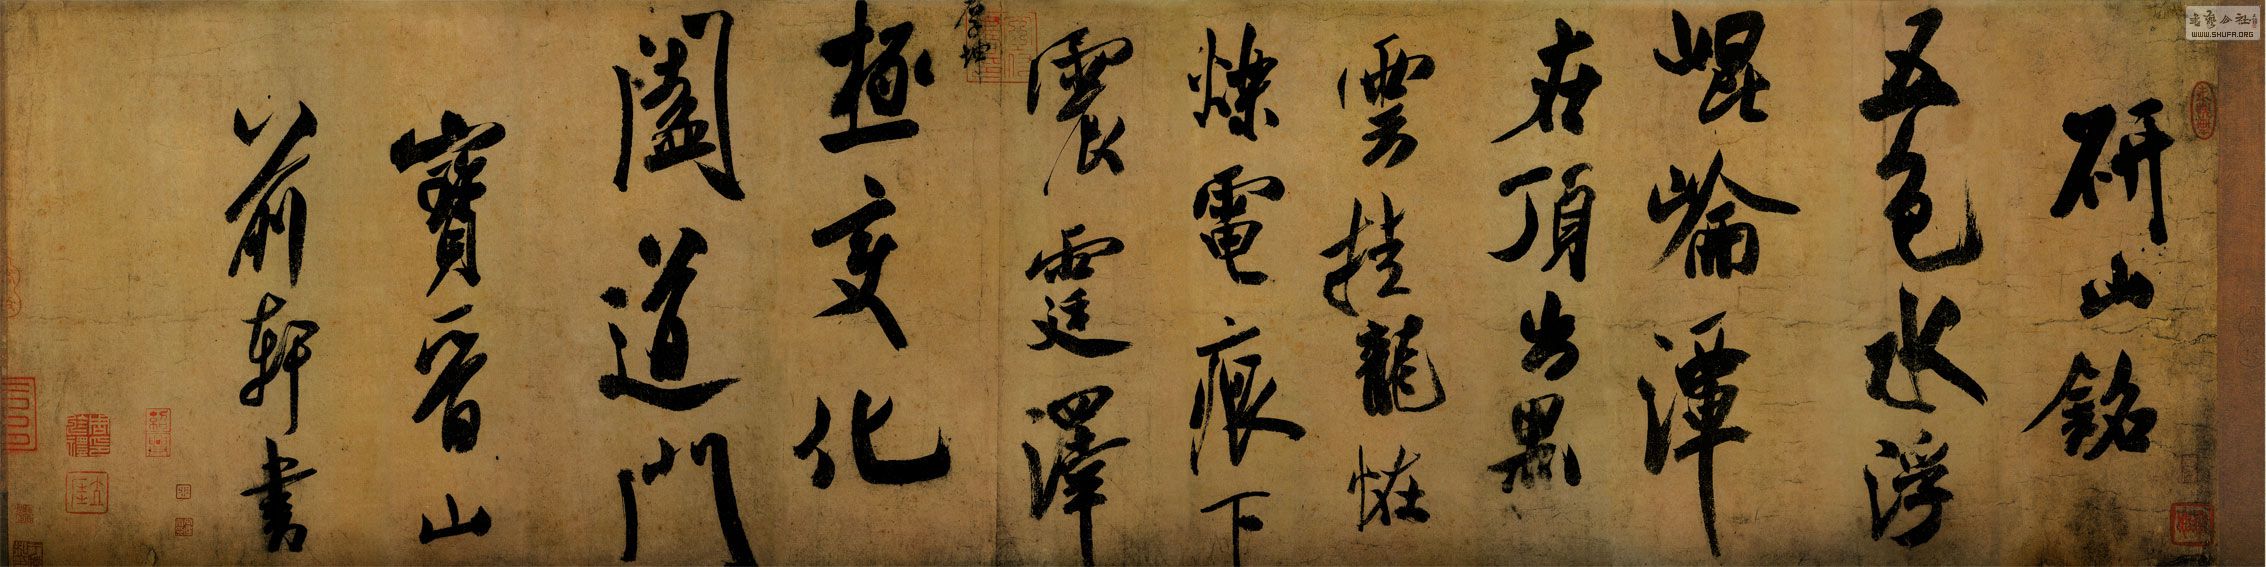 研山銘
五色水浮
崐崘潭
在頂出黑
雲挂龍恠
爍電痕下
震霆澤
厚坤
極變化
闔道門
寶晉山
前軒書
書藝公社
WWW.SHUFA.ORG